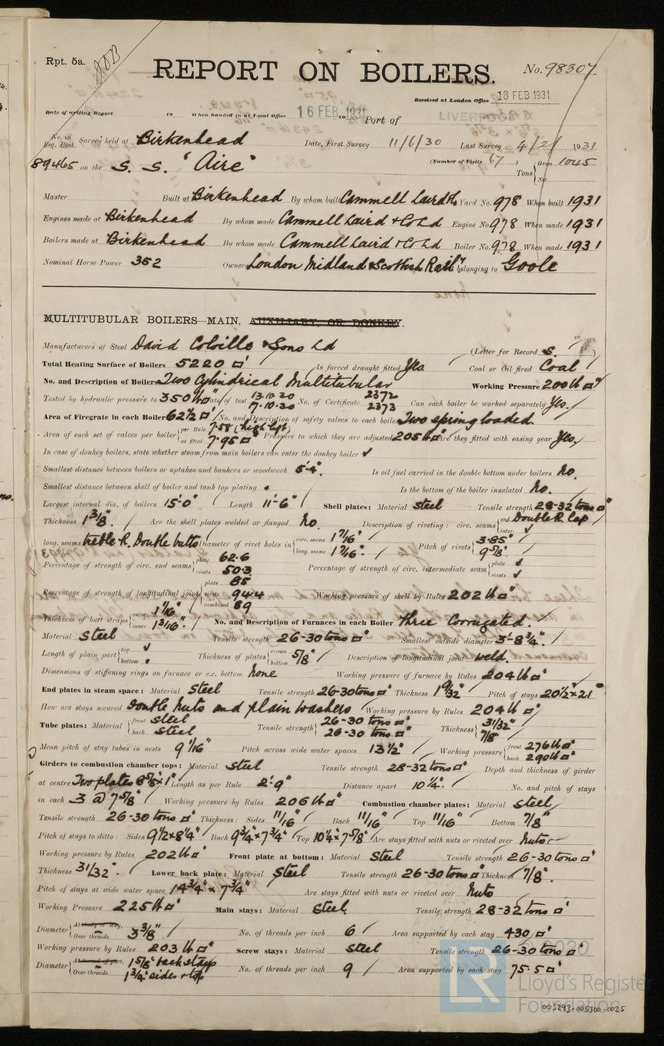 Rpt. 5a.
REPORT ON BOILERS.
No. 98307.
Received at London Office 18 FEB 1931
Date of writing Report 19 When handed in at Local Office 16 FEB 1931 Port of LIVERPOOL
No. in Reg. Book. Survey held at Birkenhead Date, First Survey 11/6/30 Last Survey 4/2/ 1931
89465 on the S.S. "Aire" (Number of Visits 67) Tons Gross 1045 Net
Master Built at Birkenhead By whom built Cammell Laird & Co Yard No. 978 When built 1931
Engines made at Birkenhead By whom made Cammell Laird & Co Ld Engine No. 978 When made 1931
Boilers made at Birkenhead By whom made Cammell Laird & Co Ld Boiler No. 978 When made 1931
Nominal Horse Power 352 Owners London Midland & Scottish Rail Belonging to Goole
MULTITUBULAR BOILERS MAIN, AUXILIARY, OR DONKEY.
Manufacturers of Steel David Colville & Sons Ld (Letter for Record S.
Total Heating Surface of Boilers 5220 □' Is forced draught fitted Yes Coal or Oil fired Coal
No. and Description of Boilers Two Cylindrical Multitubular Working Pressure 200 lb □"
Tested by hydraulic pressure to 350 lb □" Date of test 13.10.30 7.10.30 No. of Certificate 2372 2373 Can each boiler be worked separately Yes.
Area of Firegrate in each Boiler 62½ □' No. and Description of safety valves to each boiler Two spring loaded.
Area of each set of valves per boiler per Rule 7.58 (high lift) as fitted 7.95 □" Pressure to which they are adjusted 205 lb □" Are they fitted with easing gear Yes.
In case of donkey boilers, state whether steam from main boilers can enter the donkey boiler ✓
Smallest distance between boilers or uptakes and bunkers or woodwork 5'-4" Is oil fuel carried in the double bottom under boilers No.
Smallest distance between shell of boiler and tank top plating Is the bottom of the boiler insulated No.
Largest internal dia. of boilers 15'-0" Length 11'-6" Shell plates: Material Steel Tensile strength 28-32 tons □"
Thickness 1 3/8" Are the shell plates welded or flanged No. Description of riveting: circ. seams end Double R Lap inter. ✓
long. seams treble R. Double butts Diameter of rivet holes in circ. seams 1 7/16" long. seams 1 7/16" Pitch of rivets 3.85" 9 5/8"
Percentage of strength of circ. end seams plate 62.6 rivets 50.3 Percentage of strength of circ. intermediate seam plate ✓ rivets ✓
Percentage of strength of longitudinal joint plate 85 rivets 94.4 combined 89 Working pressure of shell by Rules 202 lb □"
Thickness of butt straps outer 1 1/16" inner 1 3/16" No. and Description of Furnaces in each Boiler Three Corrugated.
Material Steel Tensile strength 26-30 tons □" Smallest outside diameter 3'-8¾"
Length of plain part top ✓ bottom Thickness of plates crown bottom 5/8" Description of longitudinal joint weld.
Dimensions of stiffening rings on furnace or c.c. bottom None Working pressure of furnace by Rules 204 lb □"
End plates in steam space: Material Steel Tensile strength 26-30 tons □" Thickness 1 9/32" Pitch of stays 20½" x 21"
How are stays secured Double nuts and plain washers Working pressure by Rules 204 lb □"
Tube plates: Material front Steel back Steel Tensile strength 26-30 tons □" 26-30 tons □" Thickness 31/32" 7/8"
Mean pitch of stay tubes in nests 9 9/16" Pitch across wide water spaces 13½" Working pressure front 276 lb □" back 290 lb □"
Girders to combustion chamber tops: Material Steel Tensile strength 28-32 tons □" Depth and thickness of girder
at centre Two plates 8⅞ x 1" Length as per Rule 2'-9" Distance apart 10¼" No. and pitch of stays
in each 3 @ 7⅞" Working pressure by Rules 206 lb □" Combustion chamber plates: Material Steel
Tensile strength 26-30 tons □" Thickness: Sides 11/16" Back 11/16" Top 11/16" Bottom 7/8"
Pitch of stays to ditto: Sides 9½ x 8¼" Back 9¾ x 7¾" Top 10¼ x 7⅞ Are stays fitted with nuts or riveted over Nuts
Working pressure by Rules 202 lb □" Front plate at bottom: Material Steel Tensile strength 26-30 tons □"
Thickness 31/32" Lower back plate: Material Steel Tensile strength 26-30 tons □" Thickness 7/8".
Pitch of stays at wide water space 14¾" x 7¾" Are stays fitted with nuts or riveted over Nuts
Working Pressure 225 lb □" Main stays: Material Steel Tensile strength 28-32 tons □"
Diameter Over threads 3⅜" No. of threads per inch 6 Area supported by each stay 430 □"
Working pressure by Rules 203 lb □" Screw stays: Material Steel Tensile strength 26-30 tons □"
Diameter Over threads 1⅝" back stays 1¾" sides & top No. of threads per inch 9 Area supported by each stay 75.5 □"
© 2020
Lloyd's Register
Foundation
005293-005300-0025